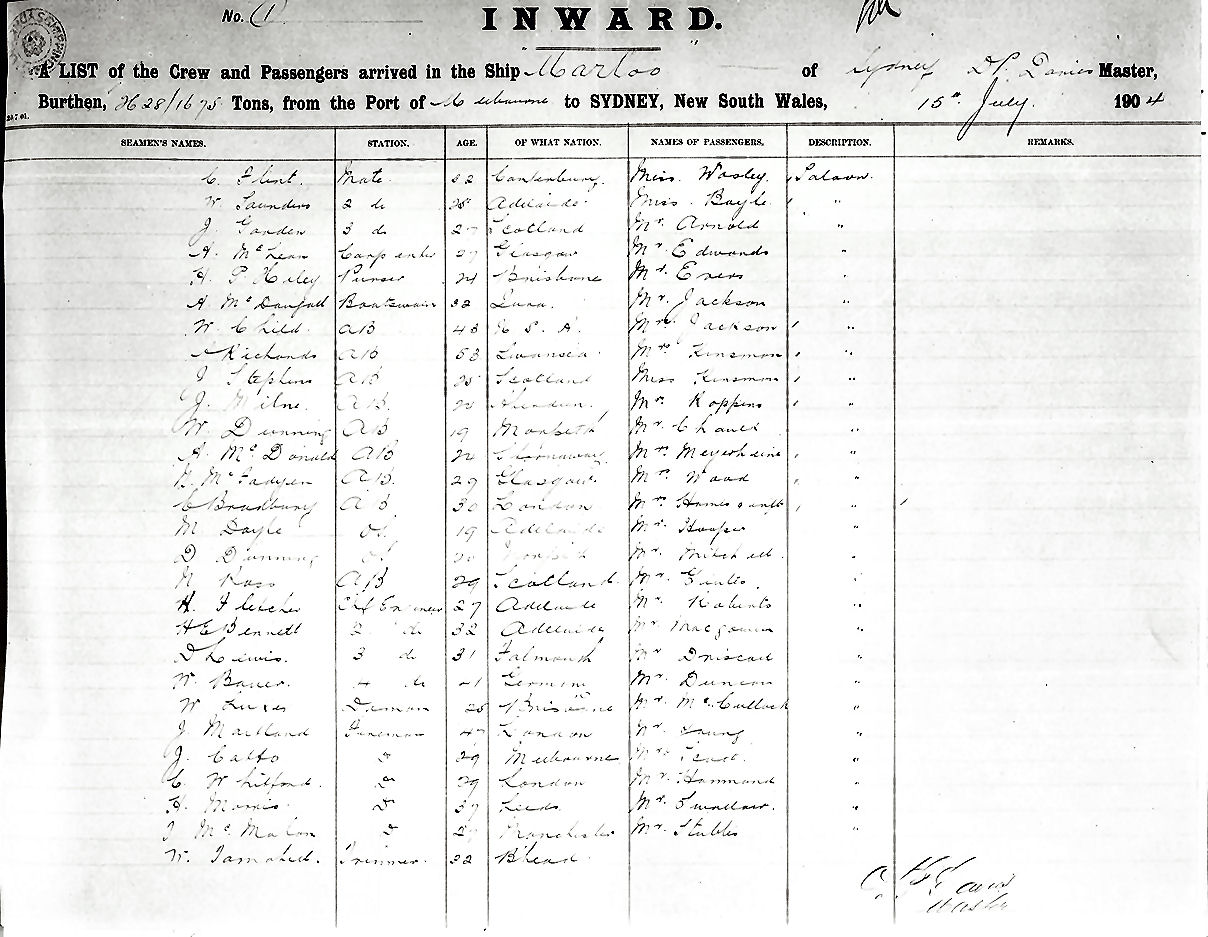 No. (1)
INWARD.
A LIST of the Crew and Passengers arrived in the Ship Marloo of Sydney Master,
Burthen, 2628/1675 Tons, from the Port of Melbourne to SYDNEY, New South Wales, 15th July. 1904
SEAMEN'S NAMES. STATION. AGE. OF WHAT NATION. NAMES OF PASSENGERS. DESCRIPTION. REMARKS.
C. Flint. Mate 32 Canterbury. Miss. Wosley. Saloon.
W. Saunders 2 do 25 Adelaide. Miss. Boyle. "
J. Gorden 3 do 27 Scotland Mr. Arnold "
A. McLean Carpenter 27 Glasgow Mr. Edwards "
H. P. Hiley Purser 24 Brisbane Mr. Evers "
A McDougall Boatswain 32 Mr. Jackson "
W. Child. AB 43 U S A. Mrs. Jackson "
Richards AB 53 Swansea Mrs Kinsmon "
J Stephens AB 25 Scotland Miss Kinsmon "
J. Milne. AB. Aberdeen. Mrs Koppins "
W. Dunning AB 19 Mr. "
A. McDonald AB Stornoway Mrs "
N. McFadyen AB. 29 Glasgow. Mrs Wood "
C Bradbury AB 30 London Mrs "
M Doyle OS. 19 Adelaide Mr. Hooper "
D Dunning OS Mr. Mitchell. "
N Ross AB 29 Scotland. Mr. "
H. Fletcher Chf Engineer 27 Adelaide Mr. Roberts "
H C Bennett 2 do 32 Adelaide Mr "
D Lewis. 3 do 31 Falmouth Mr Driscoll "
W. Bauer. 4 do Germany Mr. Duncan "
W Brisbane Mr. McCullock "
J. Maitland Fireman 47 London Mr. Young "
J. Calfo " 29 Melbourne Mr. "
C. Whitford. " 29 London Mr. Hammond "
H. Morris. " 37 Leeds Mr. Swallow. "
McMahon " 29 Manchester Mr. Stubbs "
W. Trimmer. 22 B'head.
Master